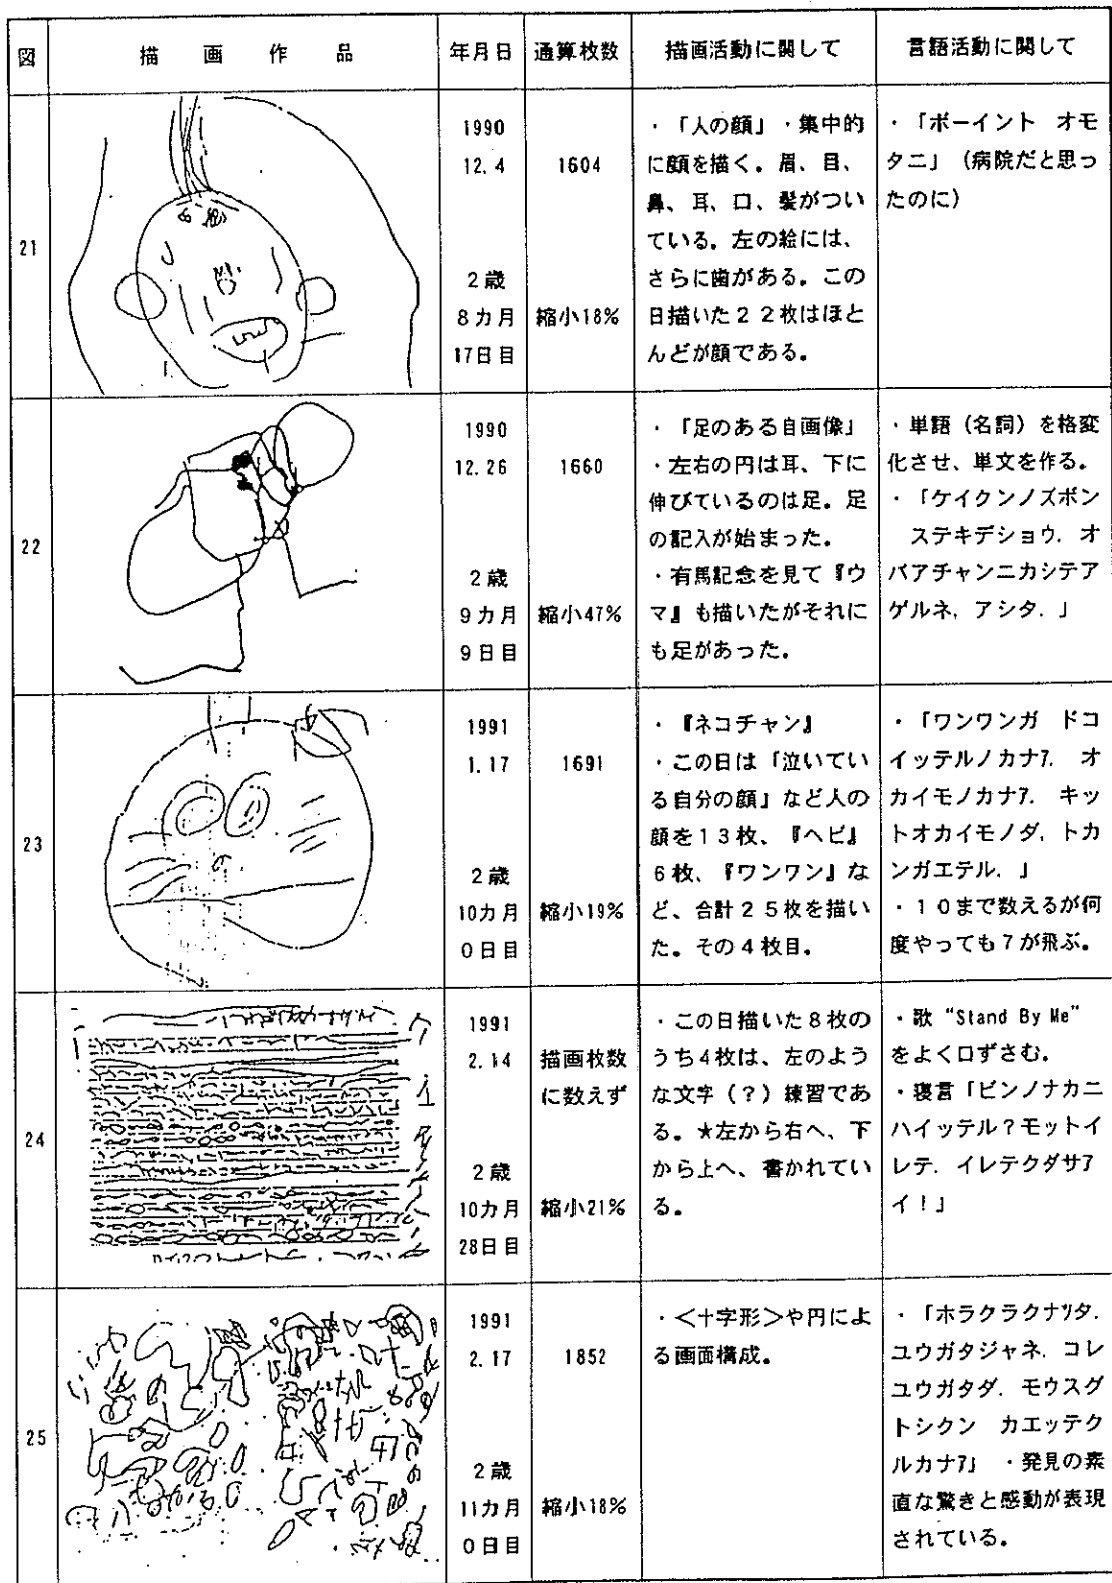 図 描画作品 年月日 通算枚数 描画活動に関して 言語活動に関して
21
1990
12.4
2歳
8カ月
17日目
1604
縮小18%
・「人の顔」・集中的
に顔を描く。眉、目、
鼻、耳、口、髪がつい
ている。左の絵には、
さらに歯がある。この
日描いた22枚はほと
んどが顔である。
・「ボーイント オモ
タニ」(病院だと思っ
たのに)
22
1990
12.26
2歳
9カ月
9日目
1660
縮小47%
・「足のある自画像」
・左右の円は耳、下に
伸びているのは足。足
の記入が始まった。
・有馬記念を見て『ウ
マ』も描いたがそれに
も足があった。
・単語(名詞)を格変
化させ、単文を作る。
・「ケイクンノズボン
ステキデショウ. オ
バアチャンニカシテア
ゲルネ, アシタ. 」
23
1991
1.17
2歳
10カ月
0日目
1691
縮小19%
・『ネコチャン』
・この日は「泣いてい
る自分の顔」など人の
顔を13枚、『ヘビ』
6枚、『ワンワン』な
ど、合計25枚を描い
た。その4枚目。
・「ワンワンガ ドコ
イッテルノカナァ. オ
カイモノカナァ. キッ
トオカイモノダ, トカ
ンガエテル. 」
・10まで数えるが何
度やっても7が飛ぶ。
24
1991
2.14
2歳
10カ月
28日目
描画枚数
に数えず
縮小21%
・この日描いた8枚の
うち4枚は、左のよう
な文字(?)練習であ
る。★左から右へ、下
から上へ、書かれてい
る。
・歌“Stand By Me”
をよく口ずさむ。
・寝言「ビンノナカニ
ハイッテル?モットイ
レテ. イレテクダサァ
イ!」
25
1991
2.17
2歳
11カ月
0日目
1852
縮小18%
・<十字形>や円によ
る画面構成。
・「ホラクラクナッタ.
ユウガタジャネ. コレ
ユウガタダ. モウスグ
トシクン カエッテク
ルカナァ」 ・発見の素
直な驚きと感動が表現
されている。